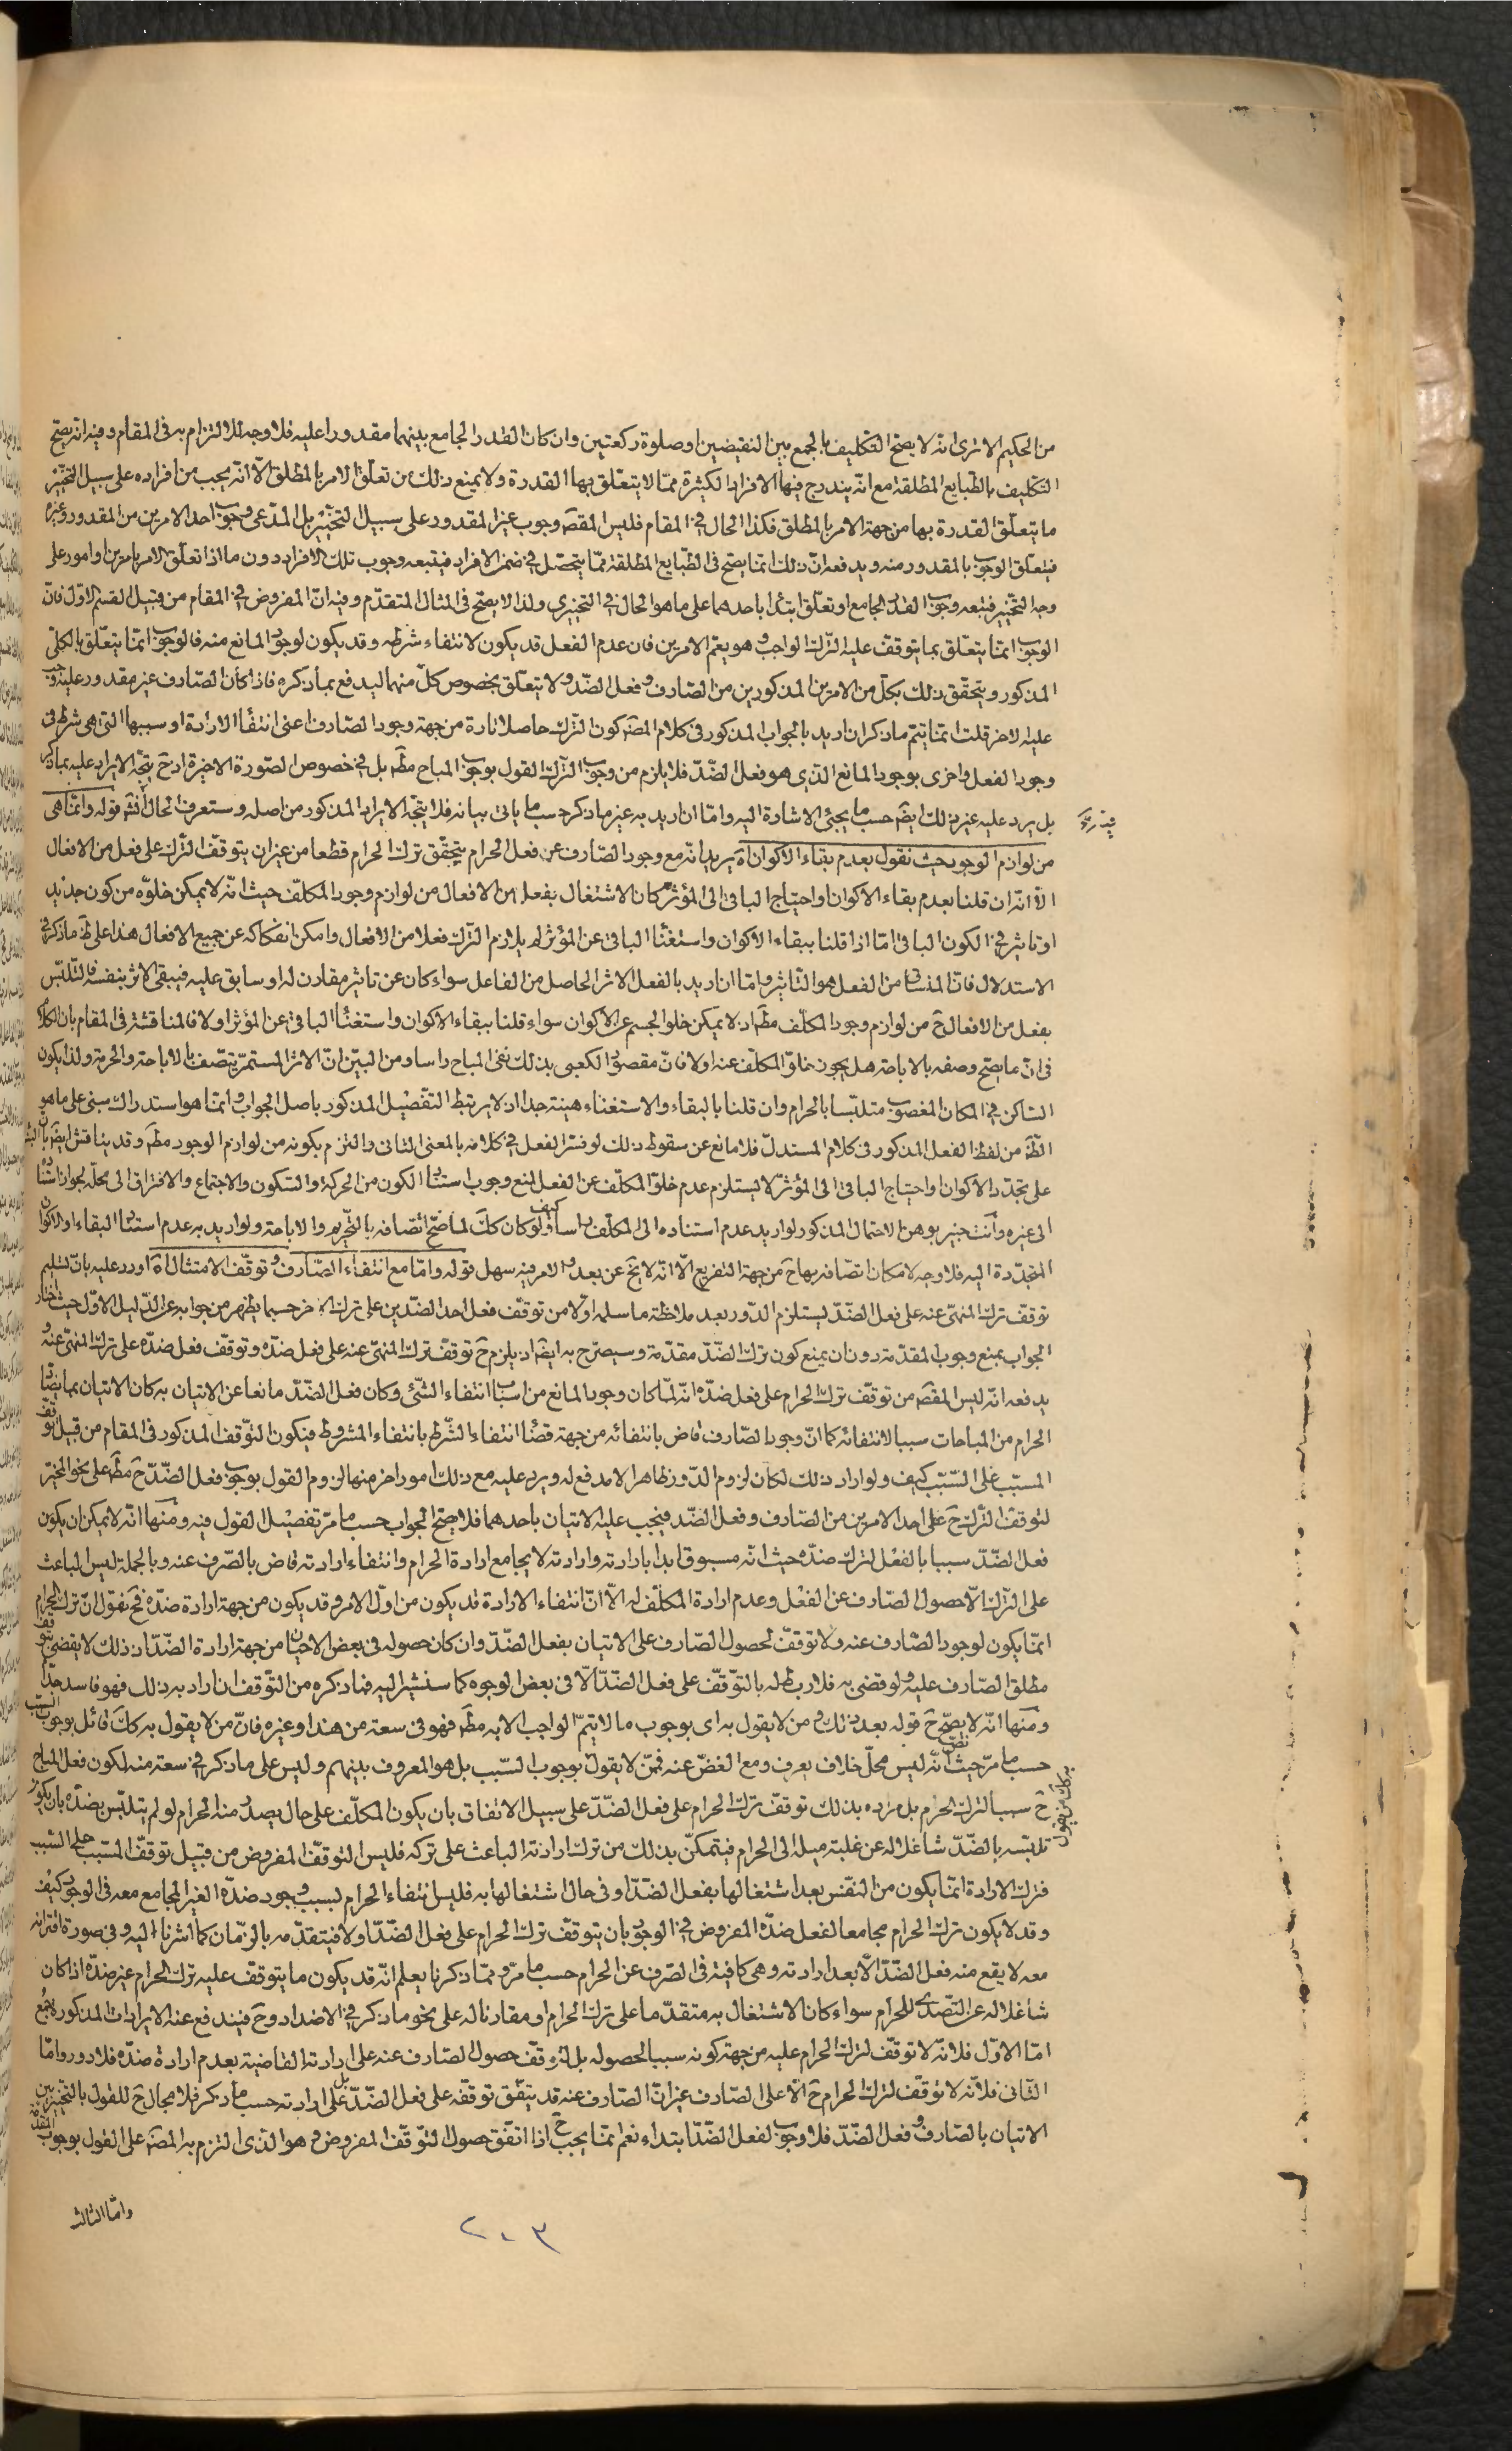 من الحكيم الا ترى انه لا يصح التكليف بالجمع بين النقيضين او صلوة ركعتين وان كان القدر الجامع بينهما مقدورا عليه فلا وجه للالتزام به في المقام وفيه انه يصح
التكليف بالطبايع المطلقة مع انه يندرج فيها الافراد الكثيرة مما لا يتعلق بها القدرة ولا يمنع ذلك من تعلق الامر بالمطلق الا انه يجب من افراده على سبيل التخيير
ما يتعلق القدرة بها من جهة الامر بالمطلق فكذا الحال في المقام فليس المقصَ وجوب غير المقدور على سبيل التخيير بل المدعى وجوب احد الامرين من المقدور وغيره
فيتعلق الوجوب بالمقدور منه ويدفعه ان ذلك انما يصح في الطبايع المطلقة مما يتحصل في ضمن الافراد فيتبعه وجوب تلك الافراد دون ما اذا تعلق الامر بامرين او امور على
وجه التخيير فيتبعه وجوب القدر الجامع او تعلق ابتداء باحدهما على ما هو الحال في التخييري ولذا لا يصح في المثال المتقدم وفيه ان المفروض في المقام من قبيل القسم الاول فان
الوجوب انما يتعلق بما يتوقف عليه الترك الواجب وهو يعم الامرين فان عدم الفعل قد يكون لانتفاء شرطه وقد يكون لوجود المانع منه فالوجوب انما يتعلق بالكلي
المذكور ويتحقق ذلك بكل من الامرين المذكورين من الصارف وفعل الضد ولا يتعلق بخصوص كل منهما ليدفع بما ذكره فاذا كان الصارف غير مقدور عليه وجب
عليه الاخر قلت انما يتم ما ذكر ان اريد بالجواب المذكور في كلام المصَ كون الترك حاصلا تارة من جهة وجود الصارف اعنى انتفاء الارادة او سببها التي هي شرط في
وجود الفعل واخرى بوجود المانع الذي هو فعل الضد فلا يلزم من وجوب الترك القول بوجوب المباح مطَ بل في خصوص الصورة الاخيرة اذ حَ يتجه الايراد عليه بما ذكر
بل يرد عليه غير ذلك ايضَ حسب ما يجئ الاشارة اليه واما ان اريد به غير ما ذكر حسب ما ياتي بيانه فلا يتجه الايراد المذكور من اصله وستعرف الحال فيه قوله وانما هي
من لوازم الوجود حيث نقول بعدم بقاء الاكوان اهَ يريد انه مع وجود الصارف عن فعل الحرام يتحقق ترك الحرام قطعا من غير ان يتوقف الترك على فعل من الافعال
الا انه ان قلنا بعدم بقاء الاكوان او احتياج الباقي الى المؤثر كان الاشتغال بفعل من الافعال من لوازم وجود المكلف حيث انه لا يمكن خلوه من كون جديد
او تاثير في الكون الباقي اما اذا قلنا ببقاء الاكوان واستغناء الباقي عن المؤثر لم يلازم الترك فعلا من الافعال وامكن انفكاكه عن جميع الافعال هذا على ظَ ما ذكر في
الاستدلال فان المنساق من الفعل هو التاثير واما ان اريد بالفعل الاثر الحاصل من الفاعل سواء كان عن تاثير مقارن له او سابق عليه فيبقى الاثر بنفسه فالتلبس
بفعل من الافعال حَ من لوازم وجود المكلف مطَ اذ لا يمكن خلو الجسم عن الاكوان سواء قلنا ببقاء الاكوان واستغناء الباقي عن المؤثر او لا فالمناقشة في المقام بان الكلام
في ان ما يصح وصفه بالاباحة هل يجوز خلو المكلف عنه او لا فان مقصود الكعبي بذلك نفي المباح راسا ومن البين ان الاثر المستمر يتصف بالاباحة والحرمة ولذا يكون
الساكن في المكان المغصوب متلبسا بالحرام وان قلنا بالبقاء والاستغناء هينة جدا اذ لا يرتبط التفصيل المذكور باصل الجواب وانما هو استدراك مبنى على ما هو
الظَ من لفظ الفعل المذكور في كلام المستدل فلا مانع عن سقوط ذلك لو فسر الفعل في كلامه بالمعنى الثاني والتزم بكونه من لوازم الوجود مطَ وقد يناقش ايضَ بان البناء
على تجدد الاكوان واحتياج الباقي الى المؤثر لا يستلزم عدم خلو المكلف عن الفعل لمنع وجوب استناد الكون من الحركة والسكون والاجتماع والافتراق الى محله لجواز استناده
الى غيره وانت خبير بوهن الاحتمال المذكور لو اريد عدم استناده الى المكلف راسا كيف ولو كان كَكَ لما صح اتصافه بالتحريم والاباحة ولو اريد به عدم استناد البقاء او الاكوان
المتجددة اليه فلا وجه لامكان اتصافه بها حَ من جهة التفريع الا انه لا يخَ عن بعد والامر فيه سهل قوله واما مع انتفاء الصارف وتوقف الامتثال اهَ اورد عليه بان تسليم
توقف ترك المنهى عنه على فعل الضد يستلزم الدور بعد ملاحظة ما سلمه اولا من توقف فعل احد الضدين على ترك الاخر حسبما يظهر من جوابه عن الدليل الاول حيث اختار
الجواب بمنع وجوب المقدمة دون ان يمنع كون ترك الضد مقدمة وسيصرح به ايضَ اذ يلزم حَ توقف ترك المنهى عنه على فعل ضده وتوقف فعل ضده على ترك المنهى عنه
يدفعه انه ليس المقصَ من توقف ترك الحرام على فعل ضده انه لما كان وجود المانع من اسباب انتفاء الشئ وكان فعل الضد مانعا عن الاتيان به كان الاتيان بما يضاد
الحرام من المباحات سببا لانتفائه كما ان وجود الصارف قاض بانتفائه من جهة قضاء انتفاء الشرط بانتفاء المشروط فيكون التوقف المذكور في المقام من قبيل توقف
المسبب على السبب كيف ولو اراد ذلك لكان لزوم الدور ظاهرا لا مدفع له ويرد عليه مع ذلك امور اخر منها لزوم القول بوجوب فعل الضد حَ مطَ على نحو المخير
لتوقف الترك حَ على احد الامرين من الصارف وفعل الضد فيجب عليه الاتيان باحدهما فلا يصح الجواب حسب ما مر تفصيل القول فيه ومنها انه لا يمكن ان يكون
فعل الضد سببا بالفعل لترك ضده حيث انه مسبوق ابدا بارادته وارادته لا يجامع ارادة الحرام وانتفاء ارادته قاض بالصرف عنه وبالجملة ليس الباعث
على الترك الا حصول الصارف عن الفعل وعدم ارادة المكلف له الا ان انتفاء الارادة قد يكون من اول الامر وقد يكون من جهة ارادة ضده فحَ نقول ان ترك الحرام
انما يكون لوجود الصارف عنه ولا توقف لحصول الصارف على الاتيان بفعل الضد وان كان حصوله في بعض الاحيان من جهة ارادة الضد اذ ذلك لا يقضى بتوقف
مطلق الصارف عليه ولو قضى به فلا ربط له بالتوقف على فعل الضد الا في بعض الوجوه كما سنشير اليه فما ذكره من التوقف ان اراد به ذلك فهو فاسد جدا
ومنها انه لا يصح حَ قوله بعد ذلك ومن لا يقول به اى بوجوب ما لا يتم الواجب الا به مطَ فهو في سعة من هذا وغيره فان من لا يقول به كَكَ قائل بوجوب السبب
حسب ما مر حيث انه ليس محل خلاف يعرف ومع الغض عنه فمن لا يقول بوجوب السبب بل هو المعروف بينهم وليس على ما ذكر في سعة منه لكون فعل المباح
حَ سببا لترك الحرام بل مراده بذلك توقف ترك الحرام على فعل الضد على سبيل الاتفاق بان يكون المكلف على حال يصدر منه الحرام لو لم يتلبس بضده بان يكون
تلبسه بالضد شاغلا له عن غلبة ميله الى الحرام فيتمكن بذلك من ترك ارادته الباعث على تركه فليس التوقف المفروض من قبيل توقف المسبب على السبب
فترك الارادة انما يكون من النفس بعد اشتغالها بفعل الضد او في حال اشتغالها به فليس انتفاء الحرام لسبب وجود ضده الغير المجامع معه في الوجود كيف
وقد لا يكون ترك الحرام مجامعا لفعل ضده المفروض في الوجود بان يتوقف ترك الحرام على فعل الضد اولا فيتقدمه بالزمان كما اشرنا اليه وفي صورة اقترانه
معه لا يقع منه فعل الضد الا بعد ارادته وهي كافية في الصرف عن الحرام حسب ما مر ومما ذكرنا يعلم انه قد يكون ما يتوقف عليه ترك الحرام غير ضده اذا كان
شاغلا له عن التصدي للحرام سواء كان الاشتغال به متقدما على ترك الحرام او مقارنا له على نحو ما ذكر في الاضداد وحَ فيندفع عنه الايرادات المذكورة اجمع
اما الاول فلانه لا توقف لترك الحرام عليه من جهة كونه سببا لحصوله بل لتوقف حصول الصارف عنه على ارادته القاضية بعدم ارادة ضده فلا دور واما
الثاني فلانه لا توقف لترك الحرام حَ الا على الصارف غير ان الصارف عنه قد يتفق توقفه على فعل الضد بل على ارادته حسب ما ذكر فلا مجال حَ للقول بالتخيير بين
الاتيان بالصارف وفعل الضد فلا وجوب لفعل الضد ابتداء نعم انما يجب حَ اذا اتفق حصول التوقف المفروض وهو الذي التزم به المصَ على القول بوجوب المقدمة
واما الثالث
٢٠٣